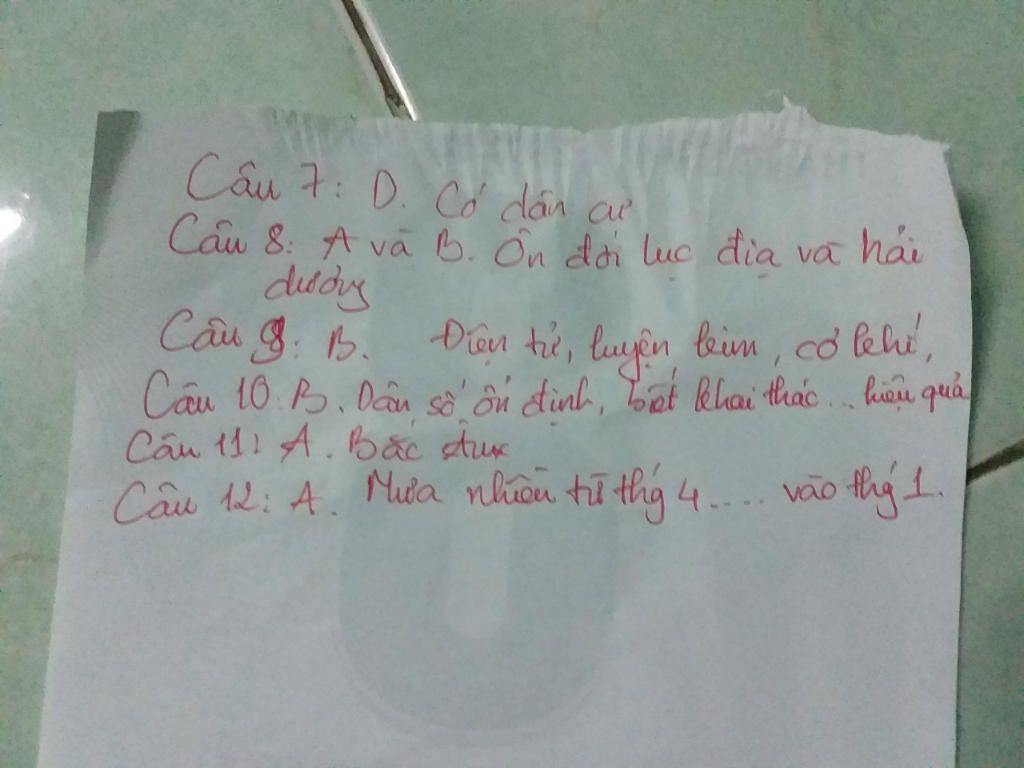 Câu 7: D. Có dân cư
Câu 8: A và B. Ôn đới lục địa và hải
dương
Câu 9: B. Điện tử, luyện kim, cơ khí,
Câu 10: B. Dân số ổn định, biết khai thác... hiệu quả
Câu 11: A. Bắc Âu
Câu 12: A. Mưa nhiều từ thg 4.... vào thg 1.